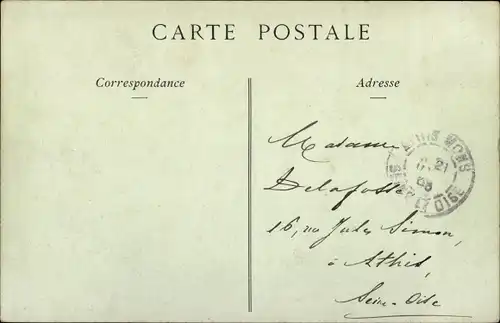 CARTE POSTALE
Correspondance
Adresse
Madame
Delafosse
16, rue Jules Simon,
à Athis,
Seine-Oise
ATHIS MONS
ET OISE